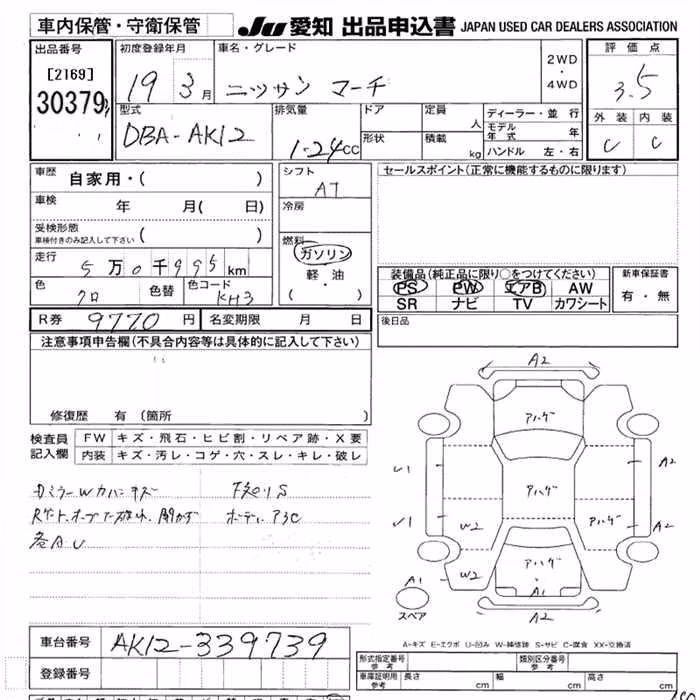 車内保管・守衛保管
JU 愛知 出品申込書 JAPAN USED CAR DEALERS ASSOCIATION
出品番号 初度登録年月 車名・グレード 2WD・4WD 評価点
[2169] 19 3月 ニッサン マーチ 3.5
30379
型式 排気量 ドア 定員 人 ディーラー・並行 外装 内装
DBA-AK12 1-24cc 形状 積載 kg モデル年式 年 C C
ハンドル 左・右
車歴 自家用・( ) シフト セールスポイント(正常に機能するものに限ります)
AT
車検 年 月( 日) 冷房
受検形態 ( )
車検付きのみ記入して下さい
燃料
ガソリン
走行 5万0千995km 軽・油
(・)
装備品(純正品に限り○をつけてください) 新車保証書
色 クロ 色替 色コード KH3
PS PW エアB AW 有・無
SR ナビ TV カワシート
R券 9770円 名変期限 月 日 後日品
注意事項申告欄(不具合内容等は具体的に記入して下さい)
修復歴 有 (箇所
検査員記入欄 FW キズ・飛石・ヒビ割・リペア跡・X要
内装 キズ・汚レ・コゲ・穴・スレ・キレ・破レ
A2
アハゲ
アハゲ
A2
W2 アハゲ A2
アハゲ
A1 W2 A1
スペア A2
下廻りS
各AU
車台番号 AK12-339739
登録番号
A-キズ E-エクボ U-凹み W-補修跡 S-サビ C-腐食 XX-交換済
形式指定番号 参考 類別区分番号 参考
車庫証明用 参考 長さ cm 幅 cm 高さ cm